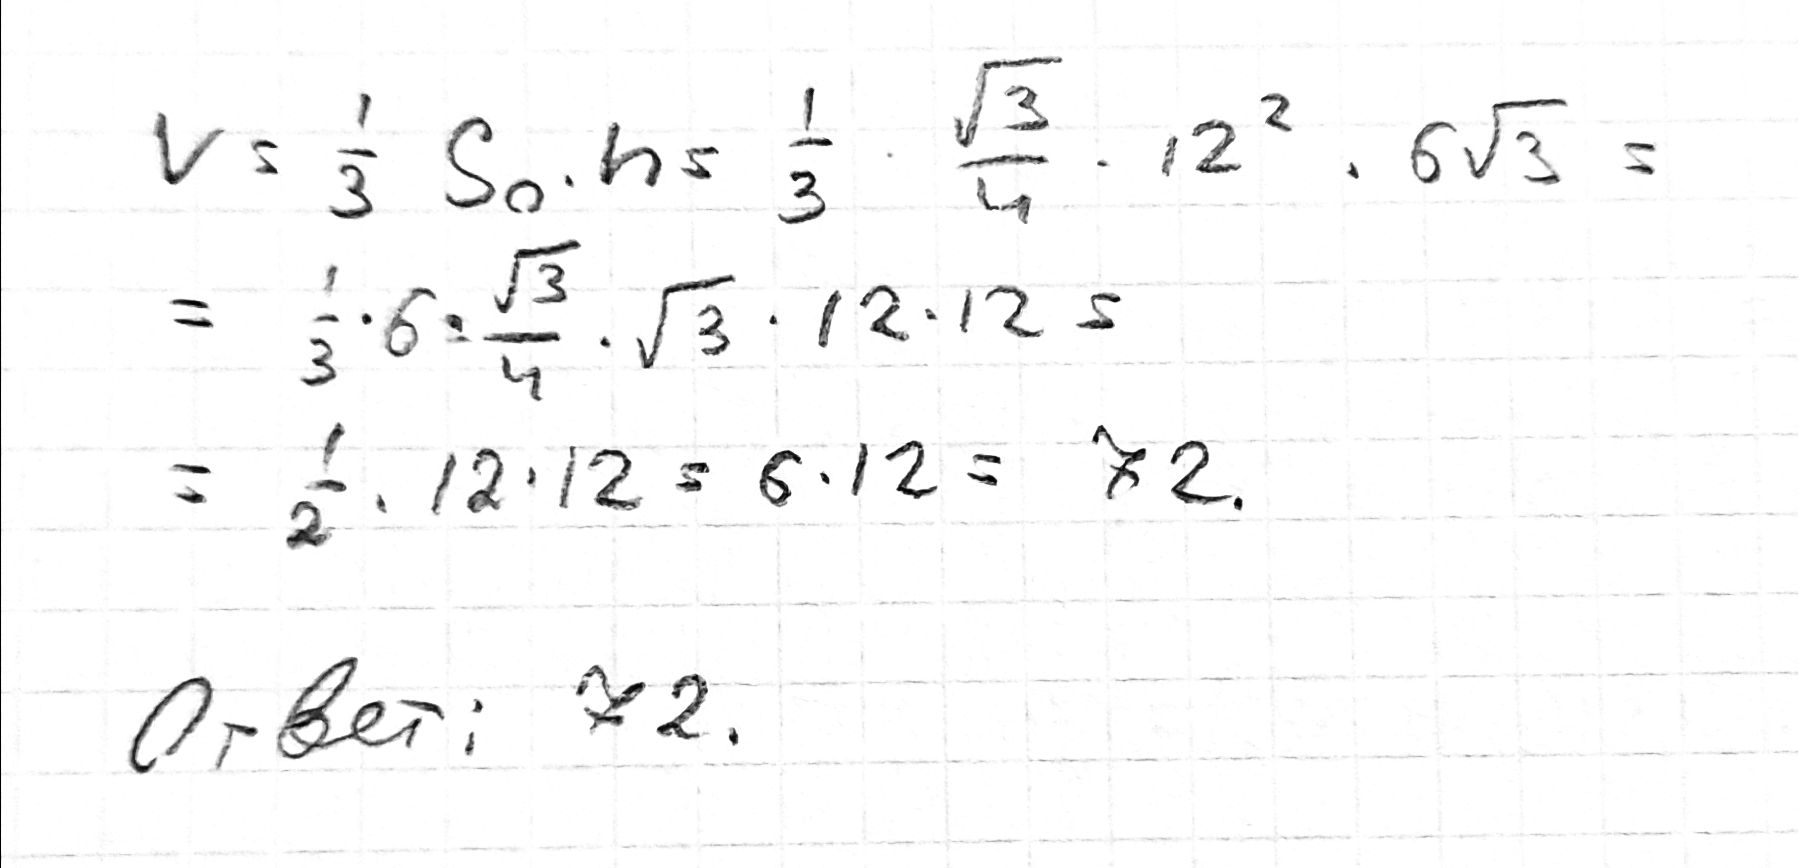 V = 1/3 S₀ · h = 1/3 · √3/4 · 12² · 6√3 =
= 1/3 · 6 · √3/4 · √3 · 12 · 12 =
= 1/2 · 12 · 12 = 6 · 12 = 72.
Ответ: 72.